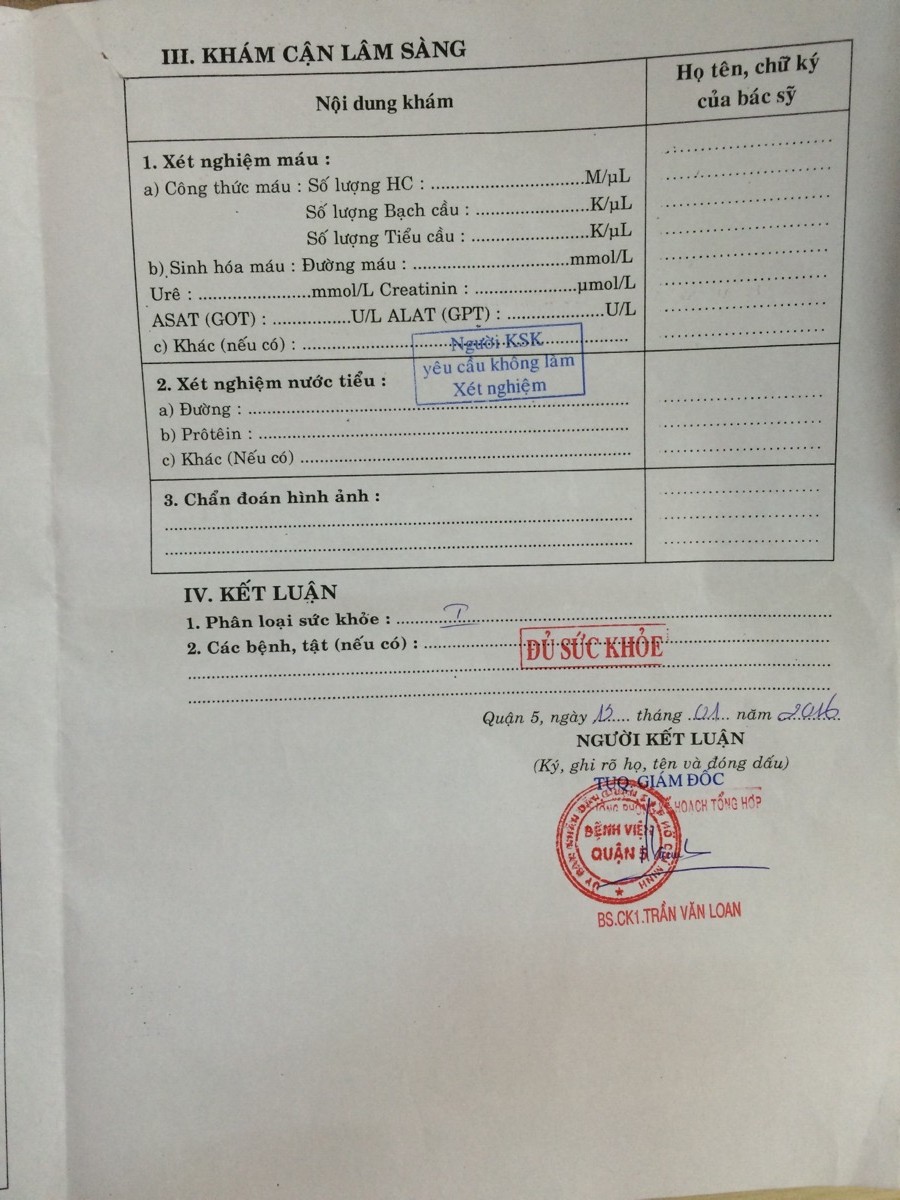 III. KHÁM CẬN LÂM SÀNG
Nội dung khám
Họ tên, chữ ký
của bác sỹ
1. Xét nghiệm máu :
a) Công thức máu : Số lượng HC : ..............................M/µL
Số lượng Bạch cầu : ......................K/µL
Số lượng Tiểu cầu : .......................K/µL
b) Sinh hóa máu : Đường máu : ..............................mmol/L
Urê : ......................mmol/L Creatinin : ....................µmol/L
ASAT (GOT) : ...............U/L ALAT (GPT) : ...................U/L
c) Khác (nếu có) : ................................................................
Người KSK
yêu cầu không làm
Xét nghiệm
2. Xét nghiệm nước tiểu :
a) Đường : ..........................................................................
b) Prôtêin : ........................................................................
c) Khác (Nếu có) ................................................................
3. Chẩn đoán hình ảnh :
IV. KẾT LUẬN
1. Phân loại sức khỏe : ............I............
2. Các bệnh, tật (nếu có) : ............
ĐỦ SỨC KHỎE
Quận 5, ngày 13.... tháng .01... năm 2016
NGƯỜI KẾT LUẬN
(Ký, ghi rõ họ, tên và đóng dấu)
TUQ. GIÁM ĐỐC
HOẠCH TỔNG HỢP
BỆNH VIỆN
QUẬN 5
BS.CK1.TRẦN VĂN LOAN